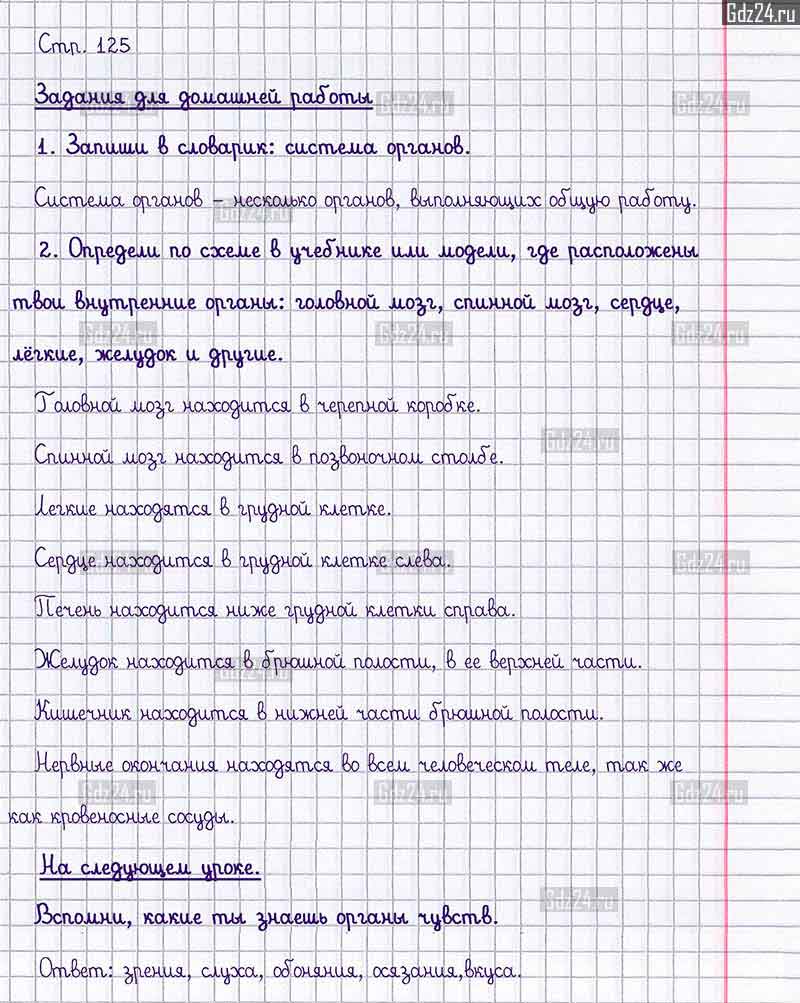 Gdz24.ru
Стр. 125
Задания для домашней работы
1. Запиши в словарик: система органов.
Система органов – несколько органов, выполняющих общую работу.
2. Определи по схеме в учебнике или модели, где расположены
твои внутренние органы: головной мозг, спинной мозг, сердце,
лёгкие, желудок и другие.
Головной мозг находится в черепной коробке.
Спинной мозг находится в позвоночном столбе.
Легкие находятся в грудной клетке.
Сердце находится в грудной клетке слева.
Печень находится ниже грудной клетки справа.
Желудок находится в брюшной полости, в ее верхней части.
Кишечник находится в нижней части брюшной полости.
Нервные окончания находятся во всем человеческом теле, так же
как кровеносные сосуды.
На следующем уроке.
Вспомни, какие ты знаешь органы чувств.
Ответ: зрения, слуха, обоняния, осязания,вкуса.